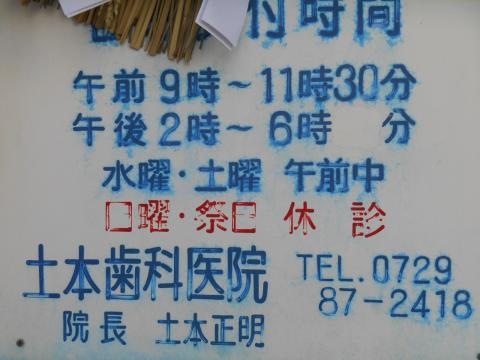 付時間
午前9時～11時30分
午後2時～6時 分
水曜・土曜 午前中
日曜・祭日 休診
土本歯科医院
院長 土本正明
TEL.0729
87-2418